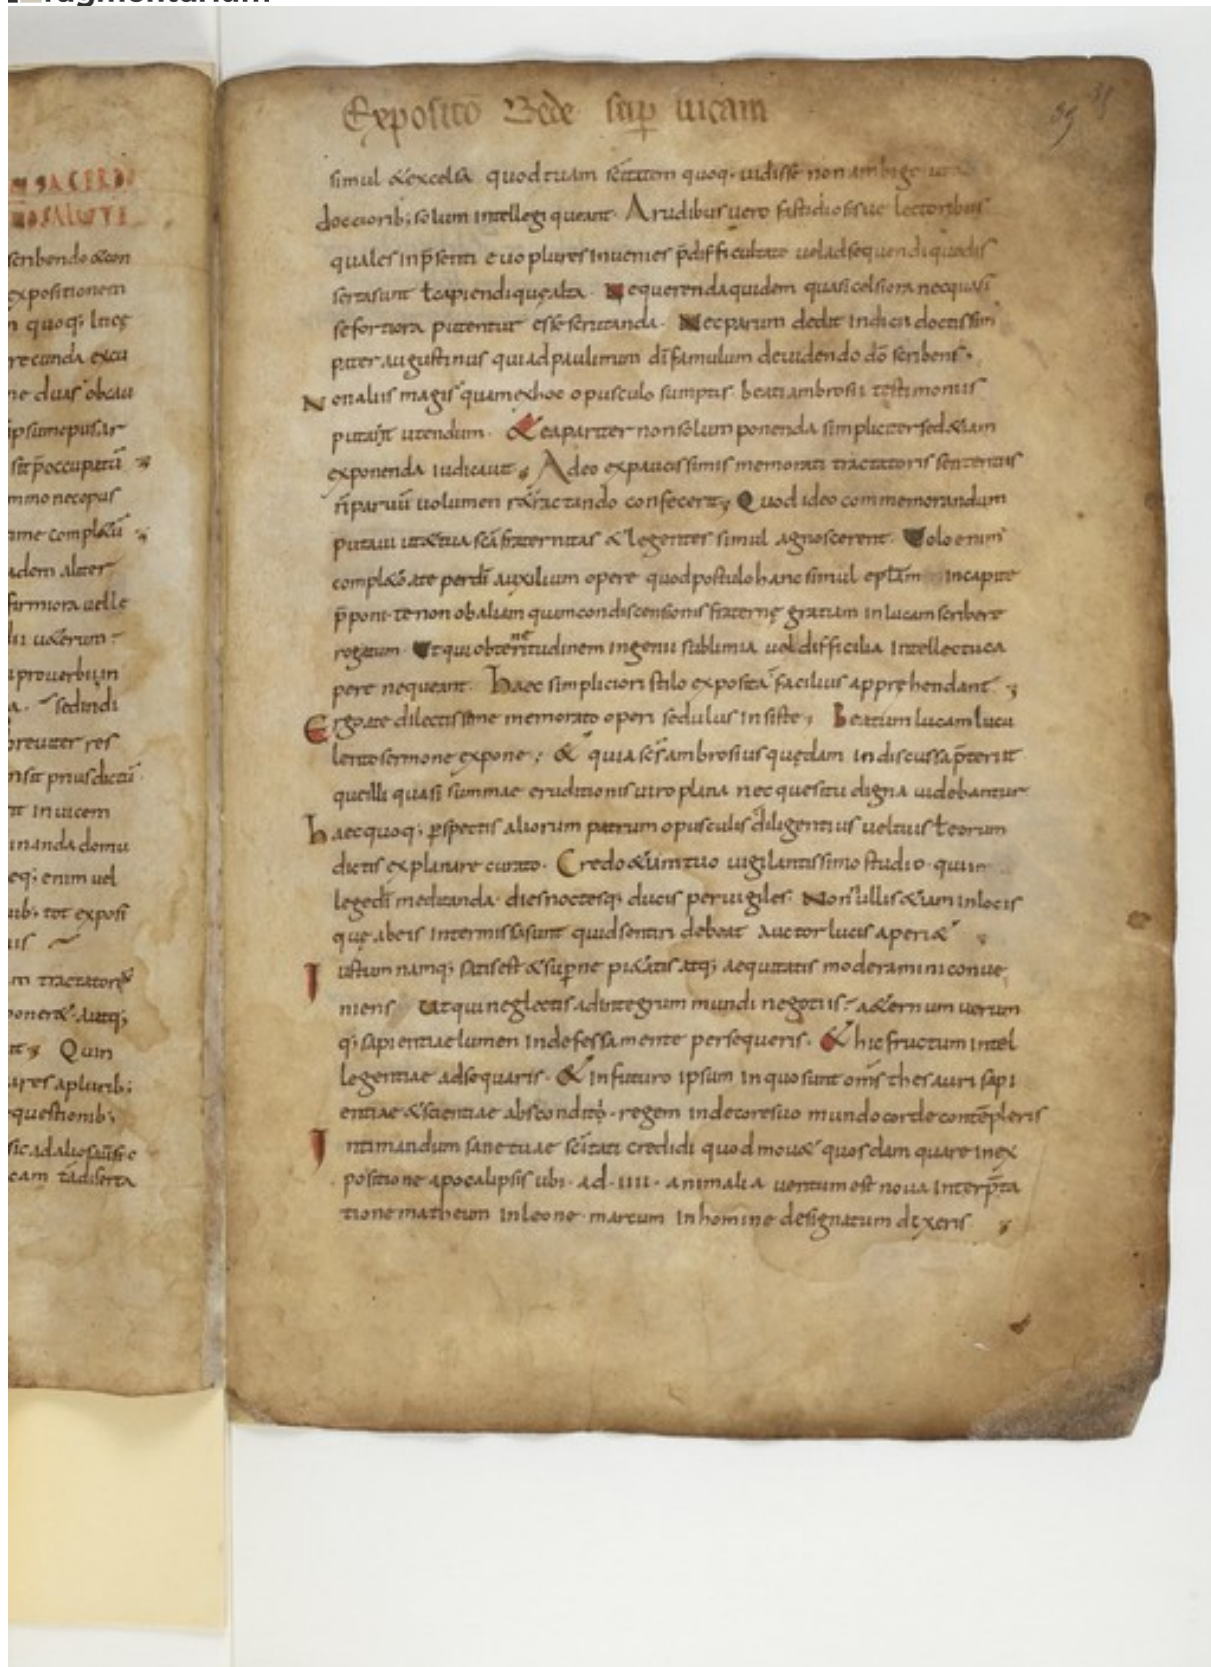 Fragmentarium
Expositō Bede sup lucam
39
N SACERDO
NO SALUTE
scribendo &con
expositionem
n quoq; luceę
recunda excu
ne duas obcau
ipsumopus ar
sit p̄occupatū
mmo nec opus
ime complexū
adem aliter
firmiora uelle
proverbium
sedindi
breuiter res
nsit prius dictū
it inuicem
inanda domu
eq; enim uel
uib; tot exposi
m tractator&
Quin
ares a plurib;
questionib;
sic ad alios
cam tā diserta
simul &excelsa quod tuam sc̄itatem quoq; uidisse non ambigo
doctiorib; solum intellegi queant. A rudibus uero fastidiosisue lectoribus
quales in p̄senti euo plures inuenies p̄ difficultate uel adsequendi quę dis
serta sunt ł capiendi quę alta. Ne querenda quidem quasi celsiora nec quasi
se fortiora putentur esse scrutanda. Nec parum dedit indicii doctissim
pater augustinus qui ad paulinum dī famulum de uidendo dō scribens.
Non aliis magis quam ex hoc opusculo sumptis beati ambrosii testimoniis
putauit utendum. &ea pariter non solum ponenda simpliciter sed &iam
exponenda iudicauit; Adeo ex paucissimis memorati tractatoris sententiis
n̄ paruū uolumen r&ractando confecerit; Quod ideo commemorandum
putaui ut &tua sc̄a fraternitas & legentes simul agnoscerent. Uolo enim
compl&o a te per dī auxilium opere quod postulo hanc simul epl̄am in capite
p̄poni te non ob aliam quam condiscensionis fraternę gratiam in lucam scribere
rogatum. Ut qui ob teneritudinem ingenii sublimia uel difficilia intellectu ca
pere nequeant. haec simpliciori stilo exposita facilius apprehendant;
Ergo a te dilectissime memorato operi sedulus insiste; Beatum lucam lucu
lento sermone expone; & quia sc̄s ambrosius quędam indiscussa p̄teriit
quę illi quasi summae eruditionis uiro plana nec quesitu digna uidebantur
haec quoq; pspectis aliorum patrum opusculis diligentius uel tuis ł eorum
dictis explanare curato. Credo &iam tuo uigilantissimo studio quin
legē dī meditanda dies noctesq; ducis peruigiles. Non nullis &iam in locis
quę ab eis intermissa sunt quid sentiri debeat auctor lucis aperi&
Iustum namq; satis est &supne pi&atis atq; aequitatis moderamini conue
niens Ut qui neglectis ad integrum mundi negotiis a&ernum uerum
q; sapientiae lumen indefessa mente persequeris. &hic fructum intel
legentiae adsequaris. & in futuro ipsum in quo sunt om̄s thesauri sapi
entiae &scientiae absconditi. regem in decore suo mundo corde contēpleris
Intimandum sane tuae sc̄itati credidi quod mou& quosdam quare in ex
positione apocalipsis ubi. ad. IIII. animalia uentum est noua interp̄ta
tione matheum in leone. marcum in homine designatum dixeris;